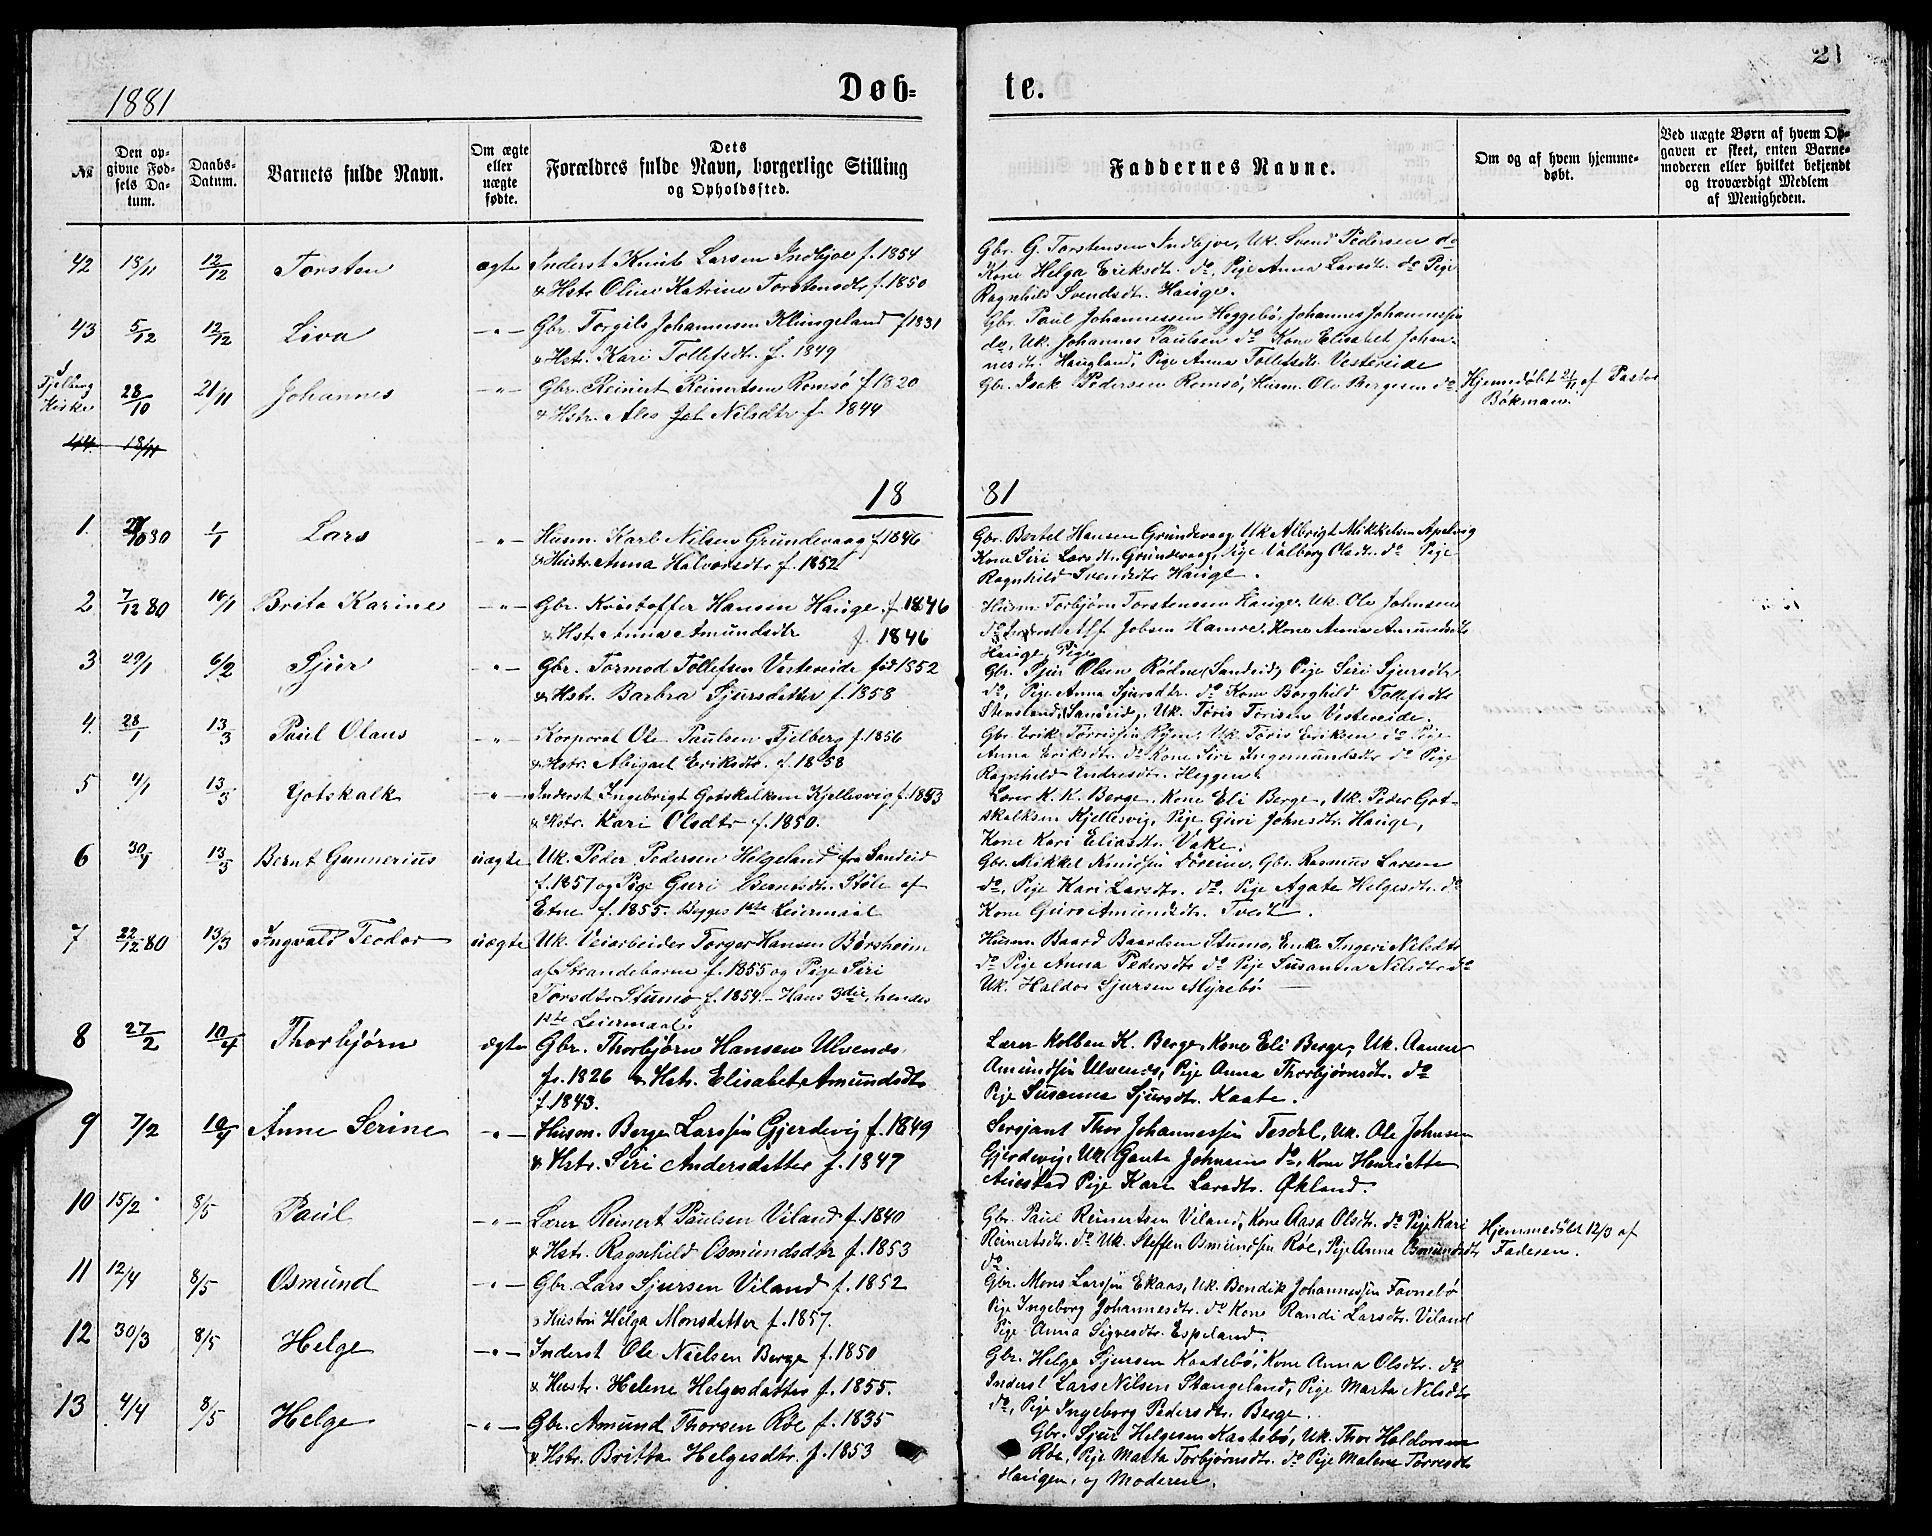 21
1881
Døb-
te.
№
Den opgivne Fødsels Datum.
Daabs-Datum.
Barnets fulde Navn.
Om ægte eller uægte fødte.
Dets Forældres fulde Navn, borgerlige Stilling og Opholdssted.
Faddernes Navne.
Om og af hvem hjemmedøbt.
Ved uægte Børn af hvem Opgaven er skeet, enten Barnemoderen eller hvilket bekjendt og troværdigt Medlem af Menigheden.
42 18/11 12/12 Torsten ægte Inderst Knut Larsen Indbjoe f. 1854
& Hstr Oline Katrine Torstensdtr f. 1850
Gbr. G. Torstensen Indbjoe, Uk. Svend Pedersen do
Kone Helga Eriksdtr. do, Pige Anna Larsdtr. do Pige
Ragnhild Svendsdtr. Hauge.
43 5/12 12/12 Liva -"- Gbr. Torgils Johannesen Klungeland f 1831
& Hstr. Kari Tollefsdtr. f. 1849
Gbr. Paul Johannessen Heggebø, Johannes Johannessen
do, Uk. Johannes Paulsen do Kone Elisabet Johan-
nesdtr. Haugland, Pige Anna Tollefsdtr. Vestereide
I Fjelberg Kirke 28/10 21/11 Johannes -"- Gbr. Reinert Reinertsen Romsø f. 1820
& Hstr. Ales Joh Nilsdtr f. 1844
Gbr. Isak Pedersen Romsø, Husm. Ole Bergesen do
Hjemdøbt 2/11 af Pastor
Bøkman.
44. 18/11
18 81
1. 80 1/1 Lars -"- Husm. Karl Nilsen Grundevaag f. 1846
& Hustr. Anna Halvorsdtr f. 1852
Gbr. Bertel Hansen Grundevaag, Uk Albrigt Mikkelsen Apelvig
Kone Siri Larsdtr. Grundevaag, Pige Valborg Olsdtr. do Pige
Ragnhild Svendsdtr Hauge.
2 7/12 80 16/1 Brita Karine -"- Gbr. Kristoffer Hansen Hauge f 1846
& Hstr. Anna Amundsdtr f. 1846
Husm Torbjørn Torstensen Hauge, Uk. Ole Johnsen
do Inderst Alf Jobsen Hamre, Kone Anna Amundsdtr
Hauge, Pige
3 29/1 6/2 Sjur -"- Gbr. Tormod Tollefsen Vestereide fød 1852
& Hstr. Barbra Sjursdatter f. 1858
Gbr. Sjur Olsen Rødne (Sandeid), Pige Siri Sjursdtr
do, Pige Anna Sjursdtr. do Kone Borghild Tollefsdtr
Stensland, (Sandeid), Uk. Toris Torisen Vestereide.
4. 28/1 13/3 Paul Olaus -"- Korporal Ole Paulsen Fjelberg f. 1856
& Hstr. Abigael Eriksdtr. f. 1858
Gbr. Erik Torrissen Uk. Toris Eriksen do Pige
Anna Eriksdtr. do Kone Siri Ingemundsdtr do Pige
Ragnhild Endresdtr. Heggen.
5 13/3 Gotskalk -"- Inderst Ingebrigt Gotskalksen Kjellesvig f. 1853
& Hstr. Kari Olsdtr f. 1850.
Lærer K. K. Berge, Kone Eli Berge, Uk. Peder Got-
skalksen Kjellesvig, Pige Guri Johnsdtr. Hauge,
Kone Kari Eliasdtr. Vake.
6 30/1 13/3 Bernt Gunnerius uægte Uk. Peder Pedersen Helgeland fra Sandeid
f. 1857 og Pige Guri Berntsdtr. Støle af
Etne f. 1855. Begges 1ste Leiermaal
Gbr. Mikkel Knudsen Gbr. Rasmus Larsen
do, Pige Kari Larsdtr. do. Pige Agate Helgesdtr. do
Kone Guro Amundsdtr. Tvedt.
7 22/12 80 13/3 Ingvald Teodor uægte Uk. Veiarbeider Torger Hansen Børsheim
af Strandebarm f. 1855 og Pige Siri
Torsdtr Stumo f. 1854. - Hans 3die, hendes
1ste Leiermaal.
Husm. Baard Baardsen Stumo, Enke Ingeri Nilsdtr
do Pige Anna Pedersdtr do Pige Susanna Nilsdtr do
Uk. Haldor Sjursen Myrebø
8 27/2 10/4 Thorbjørn ægte Gbr. Thorbjørn Hansen Ulvenæs.
f. 1826 & Hstr. Elisabet Amundsdtr
f. 1843.
Lærer Kolben K. Berge, Kone Eli Berge, Uk. Aanen
Amundsen Ulvenæs, Pige Anna Thorbjørnsdtr. do
Pige Susanna Sjursdtr. Kaate.
9 7/2 10/4 Anne Serine -"- Husm. Berge Larssen Gjerdevig f. 1849
& Hstr. Siri Andersdatter f. 1847
Sersjant Thor Johannessen Tesdal, Uk. Ole Johnsen
Gjerdevig, Uk. Gaute Johnsen do, Kone Henriette
Auestad Pige Kari Larsdtr. Økland.
10 15/2 8/5 Paul -"- Lærer Reinert Paulsen Viland f. 1840
& Hstr. Ragnhild Osmundsdtr f. 1853
Gbr. Paul Reinertsen Viland, Kone Aasa Olsdtr. do Pige Kari
Reinertsdtr. do Uk. Steffen Osmundsen Røe, Pige Anna Osmundsdtr
do
Hjemmedøbt 12/3 af
Faderen.
11 12/4 8/5 Osmund -"- Gbr. Lars Sjursen Viland f. 1852
& Hustru Helga Monsdatter f. 1857.
Gbr. Mons Larssen Ekaas, Uk. Bendik Johannessen Favnebø
Pige Ingeborg Johannesdtr. do Kone Randi Larsdtr. Viland
Pige Anna Sigvesdtr. Espeland.
12 30/3 8/5 Helge -"- Inderst Ole Nielsen Berge f. 1850
& Hustr. Helene Helgesdatter f. 1855.
Gbr. Helge Sjursen Kaatebø, Kone Anna Olsdtr. do
Inderst Lars Nilsen Stangeland, Pige Marta Nilsdtr
do, Pige Ingeborg Pedersdtr. Berge.
13 4/4 8/5 Helge -"- Gbr. Amund Thorsen Røe f. 1835
& Hstr. Britta Helgesdtr. f. 1853
Gbr. Sjur Helgesen Kaatebø, Uk. Thor Haldorsen
Røe, Pige Marta Torbjørnsdtr. do Pige Malene Torresdtr
Haugen, og Moderen.